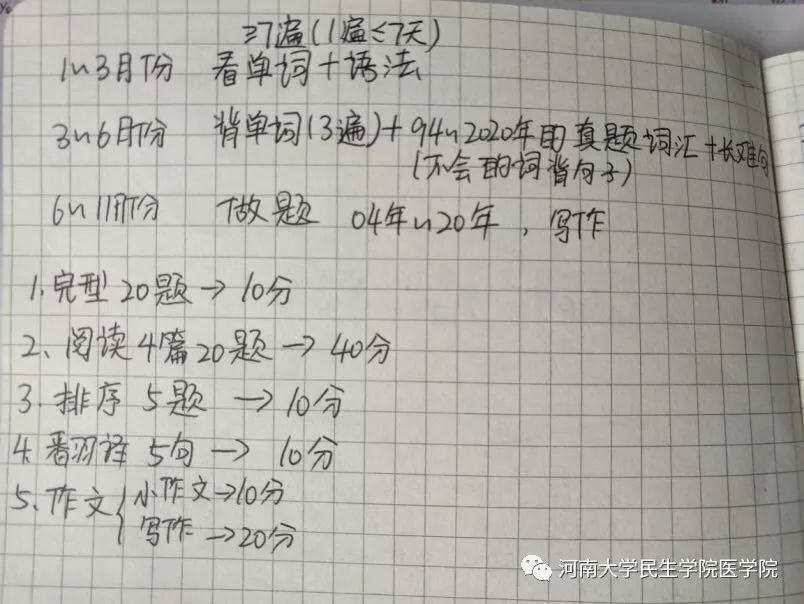 ≥7遍(1遍≤7天)
1~3月份 看单词+语法
3~6月份 背单词(3遍)+94~2020年的真题词汇+长难句
(不会的词背句子)
6~11月份 做题 04年~20年,写作
1.完型20题→10分
2、阅读4篇20题→40分
3.排序5题→10分
4.翻译5句→10分
5、作文{小作文→10分
写作→20分
河南大学民生学院医学院